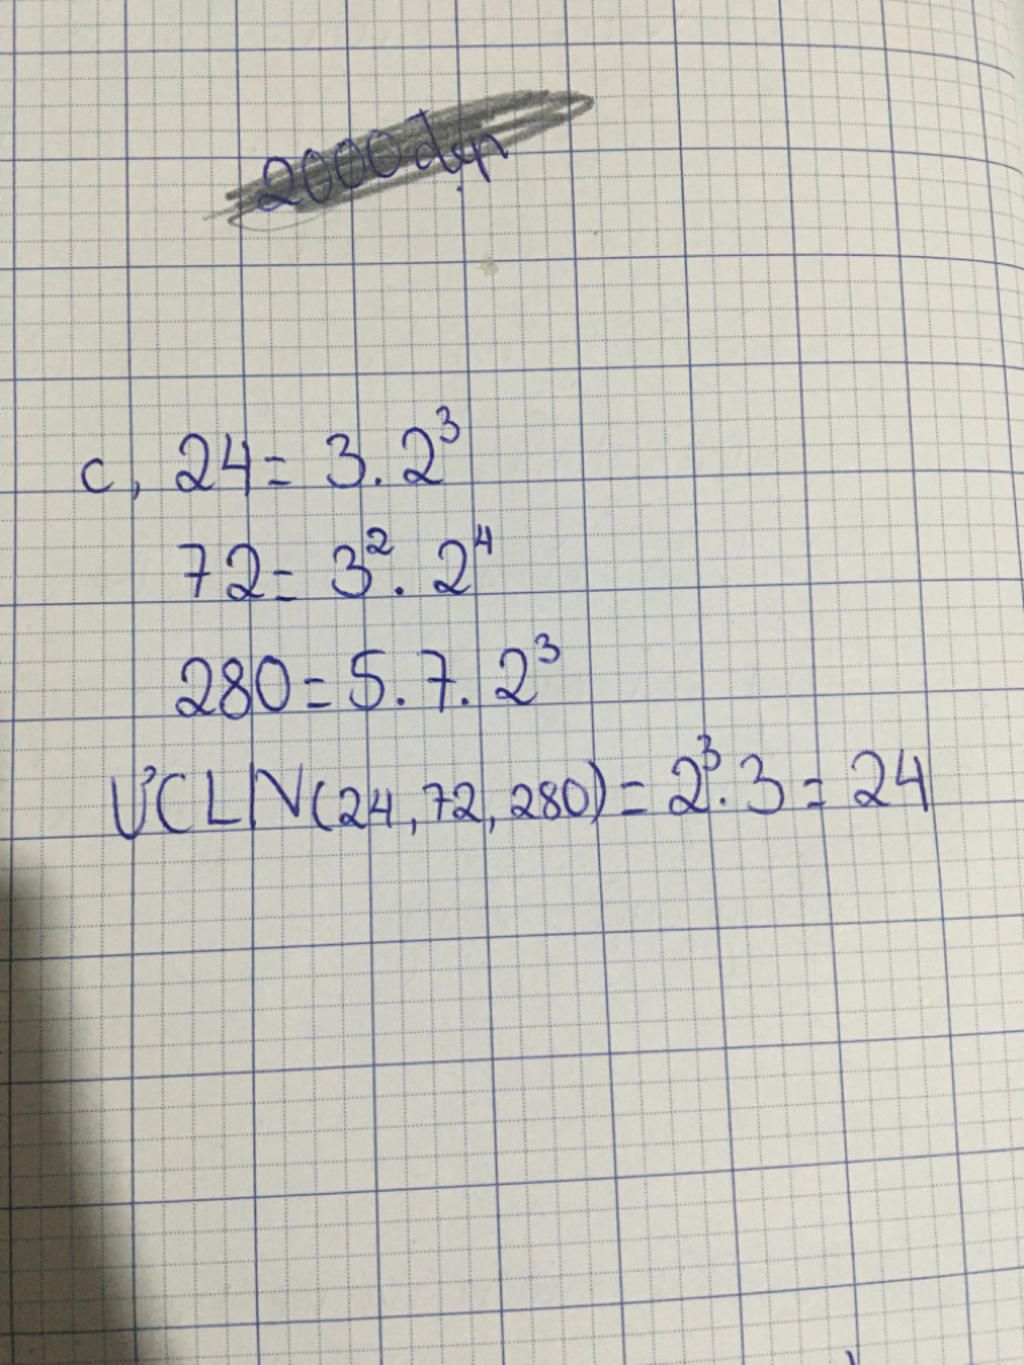 2000 đẹp
c, 24 = 3 . 2³
72 = 3² . 2⁴
280 = 5 . 7 . 2³
ƯCLN(24, 72, 280) = 2³ . 3 = 24